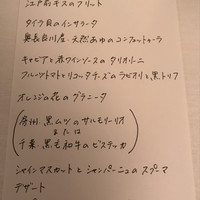 江戸前キスのフリット
タイラ貝のインサラータ
奥長良川産・天然あゆのコンフェットゥーラ
キャビアと君ワインソースのタリオリーニ
フルーツトマトとリコッタチーズのラビオリと黒トリフ
オレンジの花のグラニータ
房州 黒ムツのサルモリーリオ
または
千葉 黒毛和牛のビステッカ
シャインマスカットとシャンパーニュのスプーマ
デザート